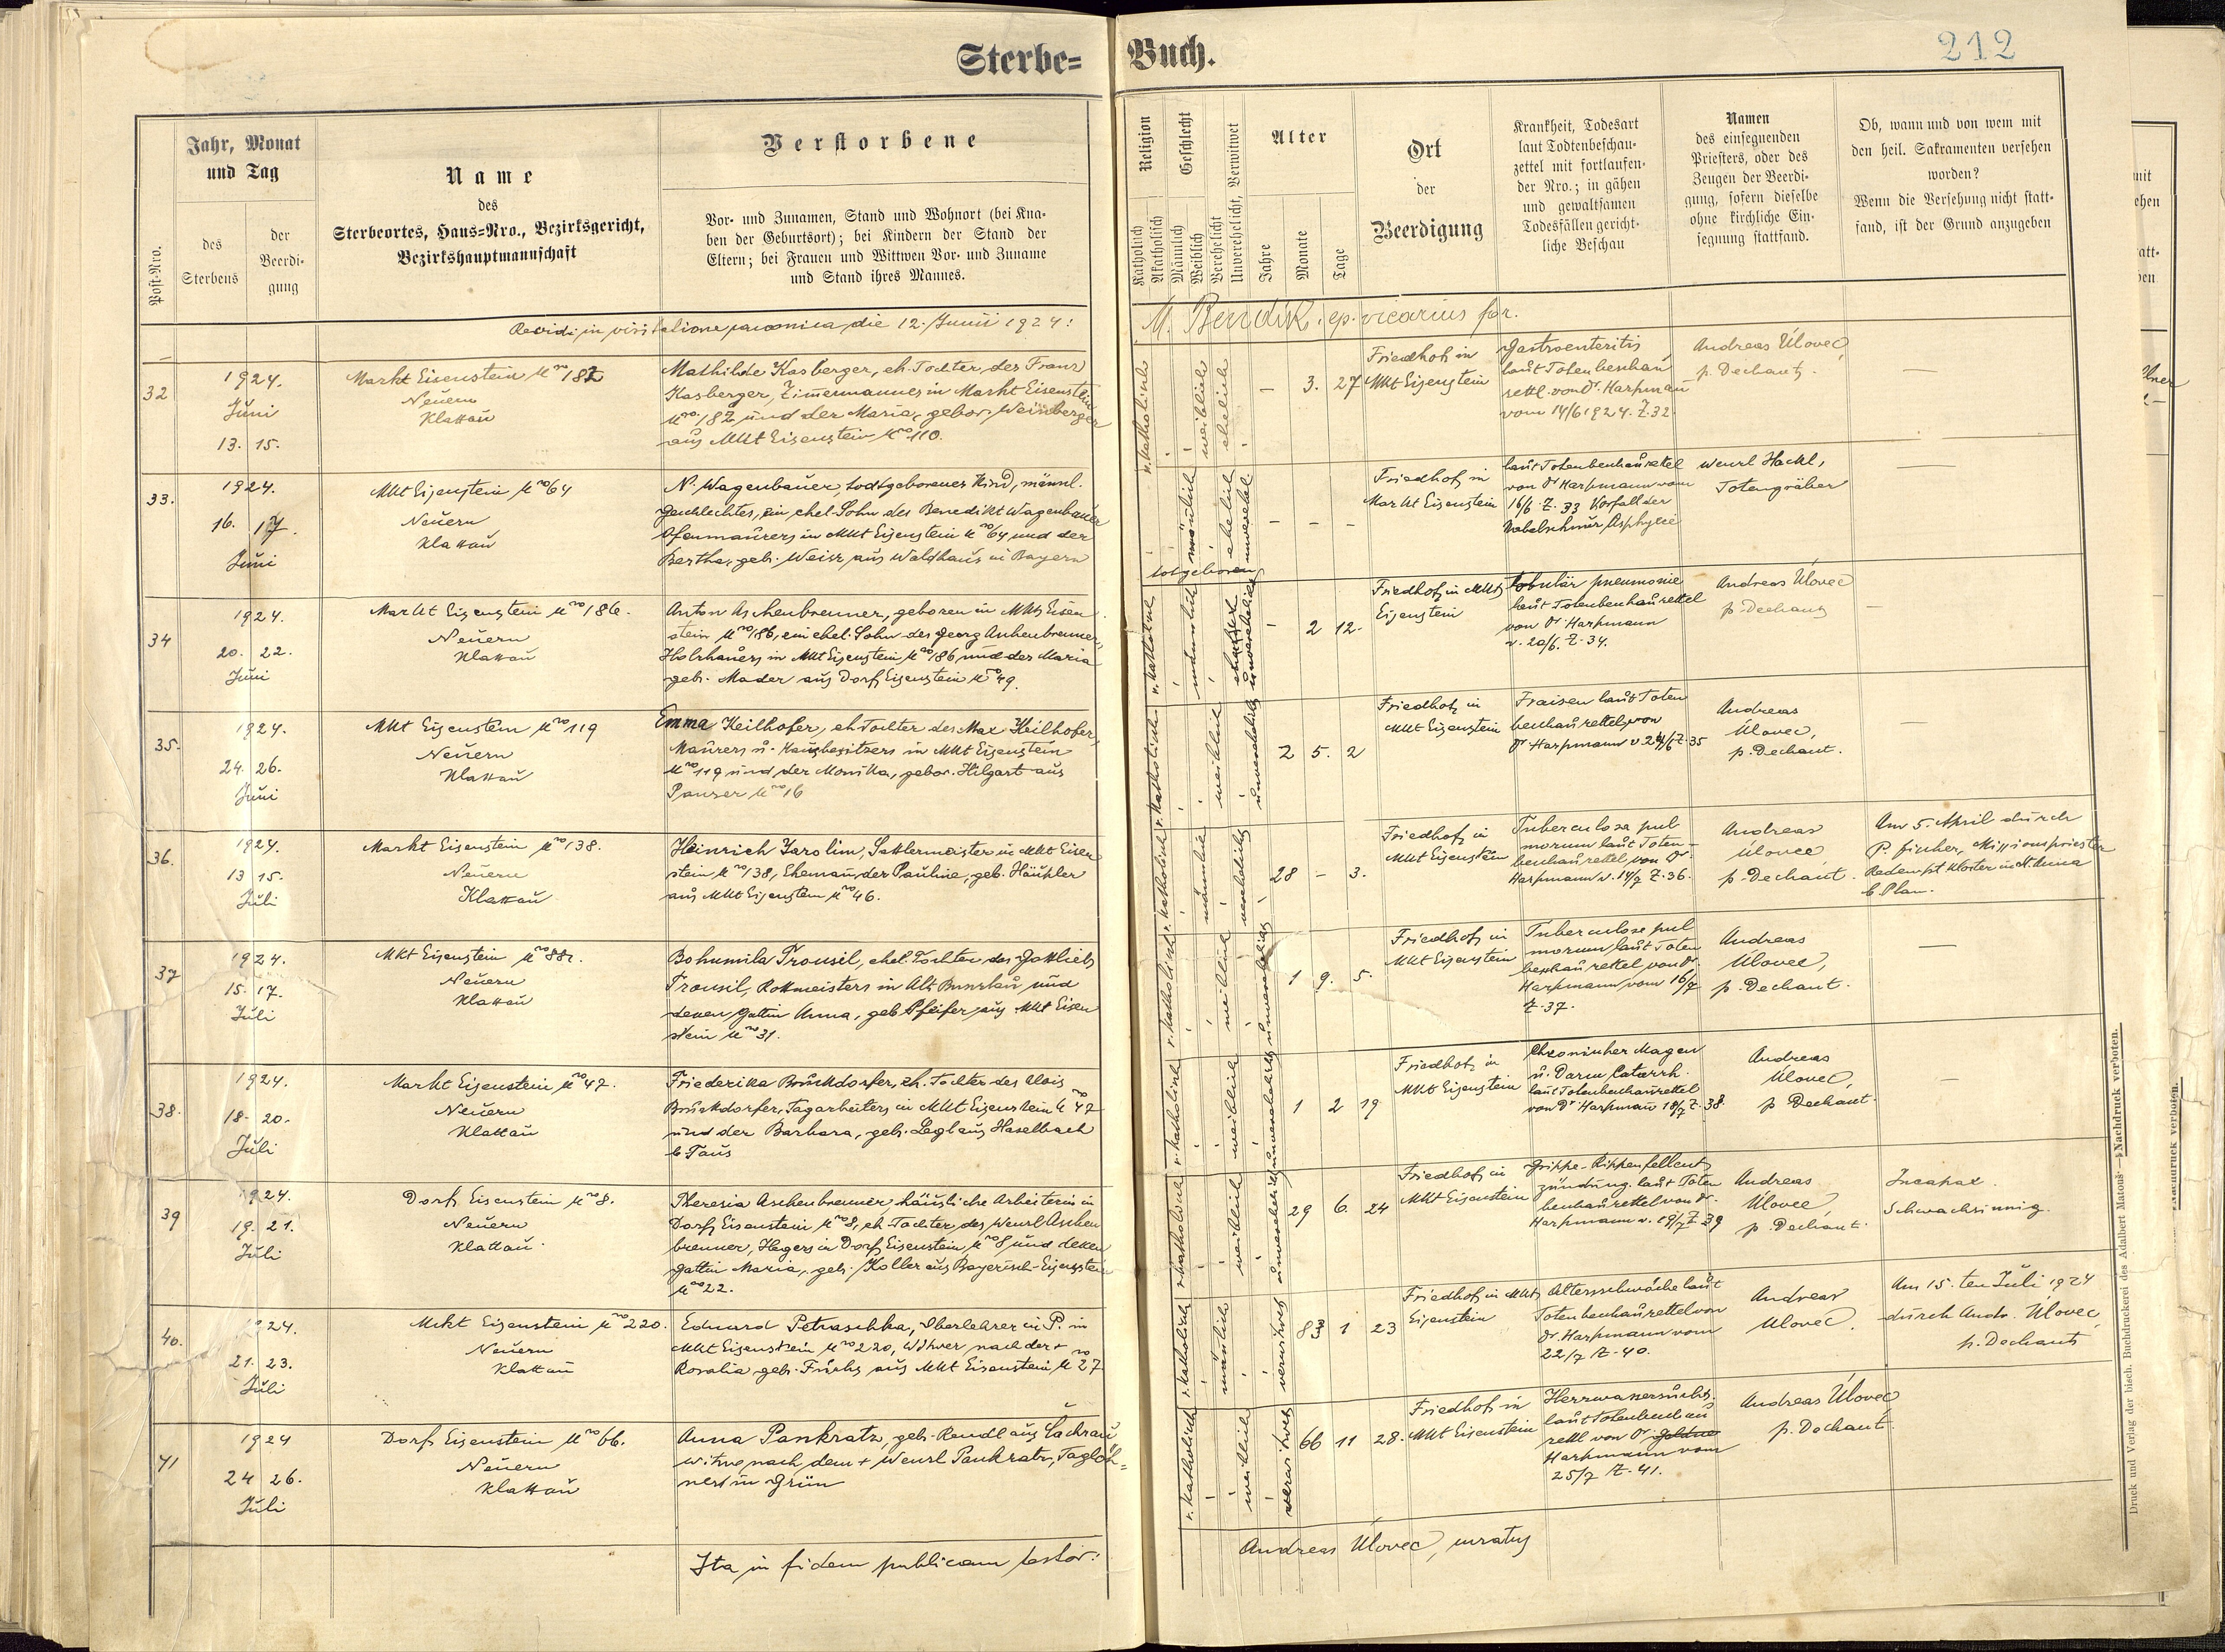 Sterbe= Buch.
212
Post-Nro.
Jahr, Monat
und Tag
des
Sterbens
der
Beerdi-
gung
Name
des
Sterbeortes, Haus=Nro., Bezirksgericht,
Bezirkshauptmannschaft
Verstorbene
Vor- und Zunamen, Stand und Wohnort (bei Kna-
ben der Geburtsort); bei Kindern der Stand der
Eltern; bei Frauen und Wittwen Vor- und Zuname
und Stand ihres Mannes.
Religion
Katholisch
Akatholisch
Geschlecht
Männlich
Weiblich
Verehelicht
Unverehelicht, Verwitwet
Alter
Jahre
Monate
Tage
Ort
der
Beerdigung
Krankheit, Todesart
laut Todtenbeschau-
zettel mit fortlaufen-
der Nro.; in gähen
und gewaltsamen
Todesfällen gericht-
liche Beschau
Namen
des einsegnenden
Priesters, oder des
Zeugen der Beerdi-
gung, sofern dieselbe
ohne kirchliche Ein-
segnung stattfand.
Ob, wann und von wem mit
den heil. Sakramenten versehen
worden?
Wenn die Versehung nicht statt-
fand, ist der Grund anzugeben
Revidi in visitatione canonica die 12. Junii 1924: M. Bendik, ep. vicarius for.
32
1924.
Juni
13. 15.
Markt Eisenstein No 182
Neuern
Klattau
Mathilde Kasberger, eh. Tochter des Franz
Kasberger, Zimmermannes in Markt Eisenstein
No 182 und der Maria, gebor. Weinberger
aus Mkt Eisenstein No 110.
r. katholisch
weiblich
ehelich
– 3. 27
Friedhof in
Mkt Eisenstein
Gastroenteritis
laut Totenbeschau
zettl. von Dr. Harpmann
vom 14/6 1924. Z. 32
Andreas Úlovec,
p. Dechant.
—
33.
1924.
16. 17.
Juni
Mkt Eisenstein No 64
Neuern
Klattau
N. Wagenbauer, todtgeborenes Kind, männl.
Geschlechtes, ein ehel. Sohn des Benedikt Wagenbauer
Ofenmaurers in Mkt Eisenstein No 64 und der
Bertha, geb. Weisz aus Waldhaus in Bayern
totgeboren
mönlich
ehelich
unverehel.
– – –
Friedhof in
Markt Eisenstein
laut Totenbeschauzettel
von Dr Harpmann vom
16/6. Z. 33 Vorfall der
Nabelschnur, Asphyxie
Wenzl Hackl,
Totengräber
—
34
1924.
20. 22.
Juni
Markt Eisenstein No 186.
Neuern
Klattau
Anton Aschenbrenner, geboren in Mkt Eisen
stein No 186, ein ehel. Sohn des Georg Aschenbrenner,
Holzhauers in Mkt Eisenstein No 186 und der Maria
geb. Mader aus Dorf Eisenstein No 49.
r. katholisch
männlich
unverehelicht
– 2 12.
Friedhof in Mkt
Eisenstein
lobulär pneumonie
laut Totenbeschauzettel
von Dr Harpmann
v. 20/6. Z. 34.
Andreas Úlovec
p. Dechant
—
35.
1924.
24. 26.
Juni
Mkt Eisenstein No 119
Neuern
Klattau
Emma Keilhofer, eh. Tochter des Max Keilhofer,
Maurers u. Hausbesitzers in Mkt Eisenstein
No 119 und der Monika, gebor. Hilgart aus
Panzer No 16
r. katholisch
weiblich
unverehelicht
2 5. 2
Friedhof in
Mkt Eisenstein
Fraisen laut Toten
beschauzettel, von
Dr Harpmann v. 24/6 Z. 35
Andreas
Úlovec,
p. Dechant.
—
36.
1924.
13 15.
Juli
Markt Eisenstein No 138.
Neuern
Klattau
Heinrich Jarolim, Sattlermeister in Mkt Eisen
stein No 138, Ehemann der Pauline, geb. Häusler
aus Mkt Eisenstein No 46.
r. katholisch
männlich
verehelicht
28 – 3.
Friedhof in
Mkt Eisenstein
Tuberculosa pul
morum laut Toten-
beschauzettel, von Dr
Harpmann v. 14/7 Z. 36.
Andreas
Úlovec
p. Dechant.
Am 5. April durch
P. Fischer, Missionspriester
Redempt Kloster in St. Anna
b Plan.
37
1924.
15. 17.
Juli
Mkt Eisenstein No 88.
Neuern
Klattau
Bohumila Trousil, ehel. Tochter des Gottlieb
Trousil, Rottmeisters in Alt Bunzlau und
dessen Gattin Anna, geb Pfeifer aus Mkt Eisen
stein No 31.
r. katholisch
weiblich
unverehelicht
1 9. 5.
Friedhof in
Mkt Eisenstein
Tuberculose pul
morum, laut Toten
beschauzettel, von Dr.
Harpmann vom 16/7
Z. 37.
Andreas
Úlovec,
p. Dechant.
—
38.
1924.
18. 20.
Juli
Markt Eisenstein No 47.
Neuern
Klattau
Friederika Bruckdorfer, eh. Tochter des Alois
Bruckdorfer, Tagarbeiters in Mkt Eisenstein No 47
und der Barbara, geb. Legl aus Haselbach
b Taus
r. katholisch
weiblich
unverehelicht
1 2 19
Friedhof in
Mkt Eisenstein
Chronischer Magen
u. Darm Catarrh.
laut Totenbeschauzettel
von Dr Harpmann 18/7 Z. 38.
Andreas
Úlovec,
p Dechant.
—
39
1924.
19. 21.
Juli
Dorf Eisenstein No 8.
Neuern
Klattau.
Theresia Aschenbrenner, häusliche Arbeiterin in
Dorf Eisenstein No 8, eh. Tochter des Wenzl Aschen
brenner, Hegers in Dorf Eisenstein, No 8 und dessen
Gattin Maria, geb. Koller aus Bayerisch-Eisenstein
No 22.
r. katholisch
weiblich
unverehelicht
29 6. 24
Friedhof in
Mkt Eisenstein
Grippe-Rippenfellent
zündung. laut Toten
beschauzettel von Dr.
Harpmann v. 19/7 Z. 39
Andreas
Úlovec,
p. Dechant.
Incapax.
Schwachsinnig.
40.
1924.
21. 23.
Juli
Mrkt Eisenstein No 220.
Neuern
Klattau
Eduard Petraschka, Oberlehrer in P. in
Mkt Eisenstein No 220, Witwer nach der +
Rosalia geb. Fuchs aus Mkt Eisenstein No 27
r. katholisch
mänlich
verwitwet
83 1 23
Friedhof in Mkt
Eisenstein
Altersschwäche laut
Totenbeschauzettel von
Dr. Harpmann vom
22/7 Z. 40.
Andreas
Úlovec.
Am 15. ten Juli 1924
durch Andr. Úlovec,
p. Dechant
41
1924
24 26.
Juli
Dorf Eisenstein No 66.
Neuern
Klattau
Anna Pankratz, geb. Rendl aus Čachrau
Witwe nach dem + Wenzl Pankratz, Taglöh=
ners in Grün
r. katholisch
weiblich
verwitwet
66 11 28.
Friedhof in
Mkt Eisenstein
Herzwassersucht
laut Totenbeschau
zettl von Dr.
Harpmann vom
25/7 Z. 41.
Andreas Úlovec
p. Dechant
Ita in fidem publicam testor: Andreas Úlovec, curatus
Druck und Verlag der bisch. Buchdruckerei des Adalbert Matouš — Nachdruck verboten.